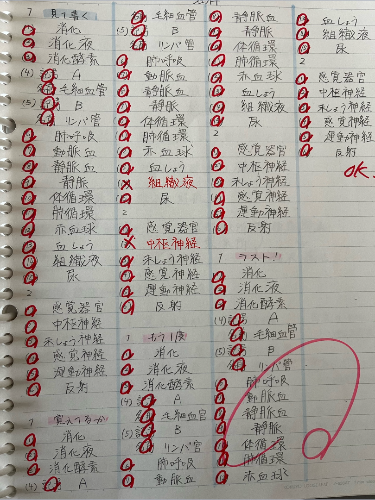 7 見て書く
消化
消化液
消化酵素
(4) 記号 A
名称 毛細血管
(5) 記号 B
名称 リンパ管
肺呼吸
動脈血
静脈血
静脈
体循環
肺循環
赤血球
血しょう
組織液
尿
2
感覚器官
中枢神経
末しょう神経
感覚神経
運動神経
反射
7 覚えてるか
消化
消化液
消化酵素
(4) 記号 A
名称 毛細血管
(5) 記号 B
名称 リンパ管
肺呼吸
動脈血
静脈血
静脈
体循環
肺循環
赤血球
血しょう
組織液
尿
2
感覚器官
中枢神経
末しょう神経
感覚神経
運動神経
反射
7 もう1度
消化
消化液
消化酵素
(4) 記号 A
名称 毛細血管
(5) 記号 B
名称 リンパ管
肺呼吸
動脈血
静脈血
静脈
体循環
肺循環
赤血球
血しょう
組織液
尿
2
感覚器官
中枢神経
末しょう神経
感覚神経
運動神経
反射
7 ラスト!
消化
消化液
消化酵素
(4) 記号 A
名称 毛細血管
(5) 記号 B
名称 リンパ管
肺呼吸
動脈血
静脈血
静脈
体循環
肺循環
赤血球
血しょう
組織液
尿
2
感覚器官
中枢神経
末しょう神経
感覚神経
運動神経
反射
OK.